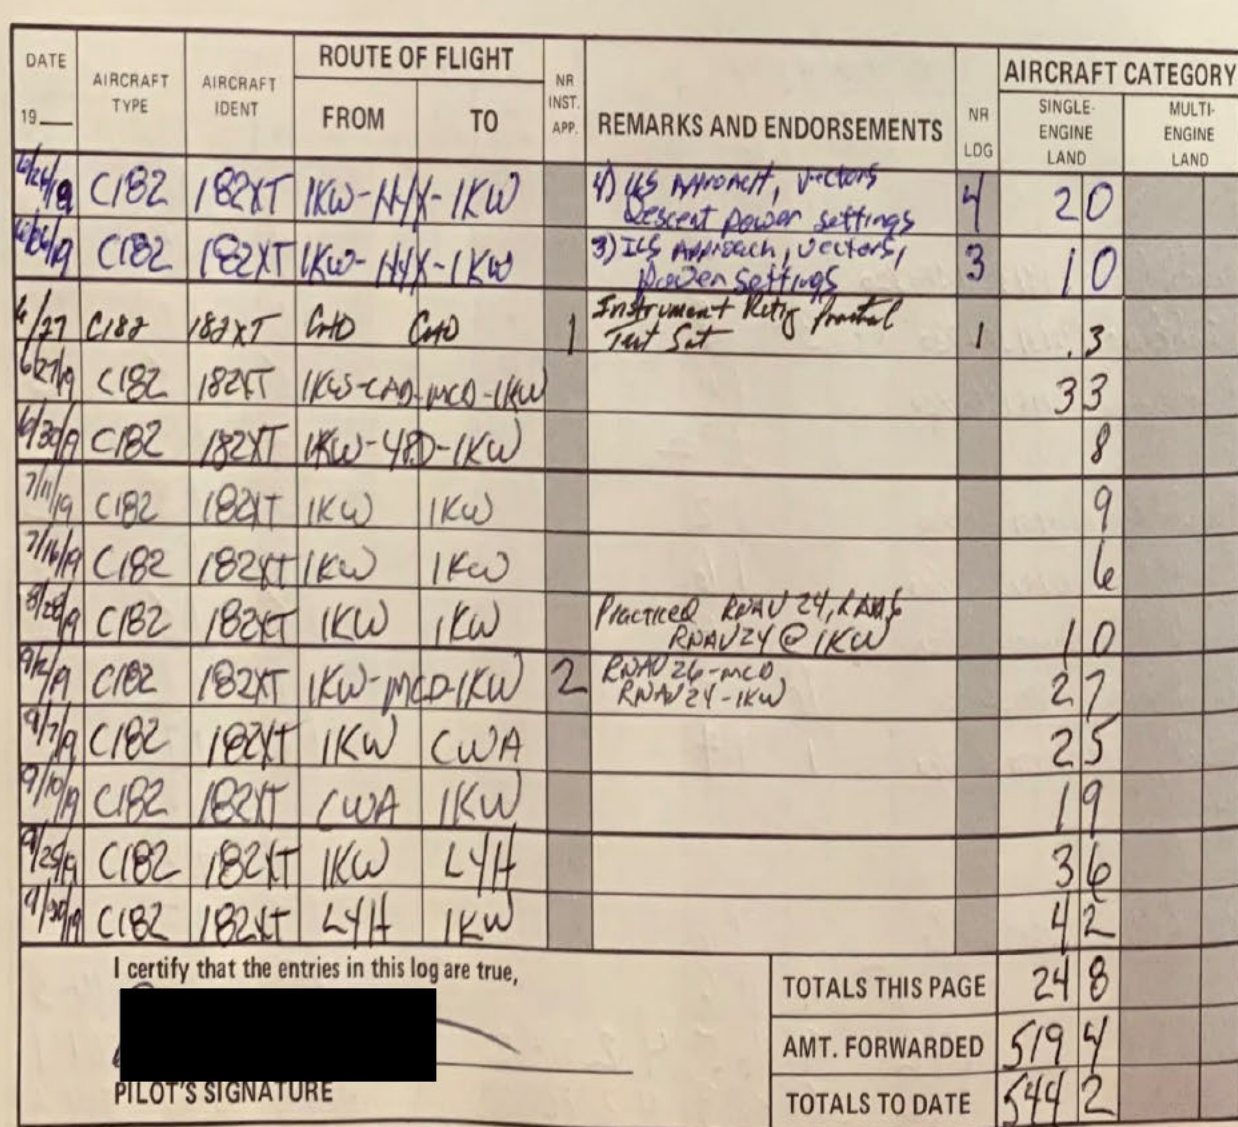 DATE 19__ AIRCRAFT TYPE AIRCRAFT IDENT ROUTE OF FLIGHT FROM TO NR INST. APP. REMARKS AND ENDORSEMENTS NR LDG AIRCRAFT CATEGORY SINGLE-ENGINE LAND MULTI-ENGINE LAND
C182 182XT 1KW-HYX-1KW 4) ILS Approach, vectors 4 2 0
Descent power settings
C182 182XT 1KW-HYX-1KW 3) ILS Approach, vectors, 3 1 0
power settings
6/27 C182 182XT CAD CAD 1 Instrument Rating Practical 1 .3
Test Sat
6/27/19 C182 182XT 1KW-CAD-MCD-1KW 3 3
6/30/19 C182 182XT 1KW-48D-1KW 8
7/11/19 C182 182XT 1KW 1KW 9
7/16/19 C182 182XT 1KW 1KW 6
8/28/19 C182 182XT 1KW 1KW Practiced RNAV 24, 1 0
RNAV 24 @ 1KW
9/2/19 C182 182XT 1KW-MCD-1KW 2 RNAV 26-MCD 2 7
RNAV 24-1KW
9/7/19 C182 182XT 1KW CWA 2 5
9/10/19 C182 182XT CWA 1KW 1 9
9/25/19 C182 182XT 1KW LYH 3 6
9/30/19 C182 182XT LYH 1KW 4 2
I certify that the entries in this log are true,
PILOT'S SIGNATURE
TOTALS THIS PAGE 24 8
AMT. FORWARDED 519 4
TOTALS TO DATE 544 2